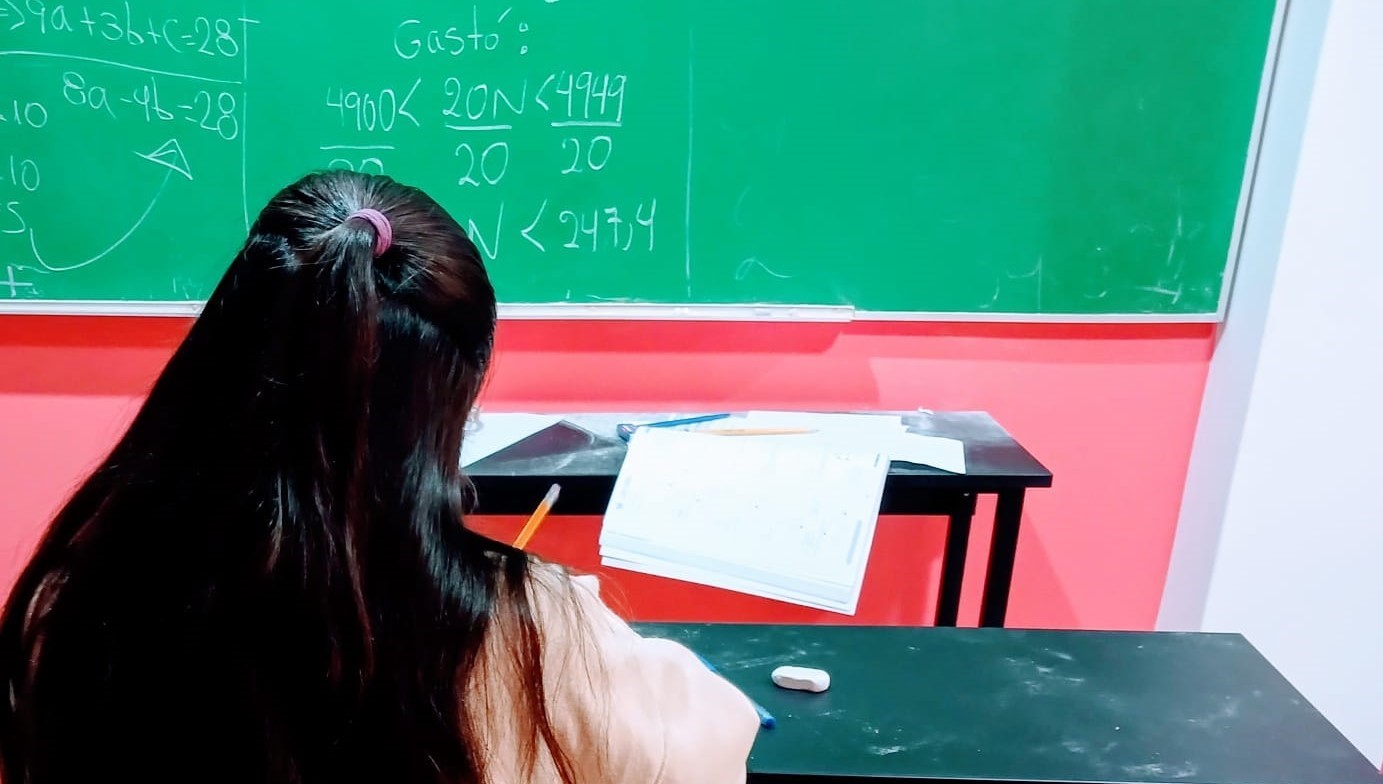 =>9a+3b+c=28
8a-4b=28
10
10
5
+
Gastó:
4900< 20N <4949
20 20
N < 247,4